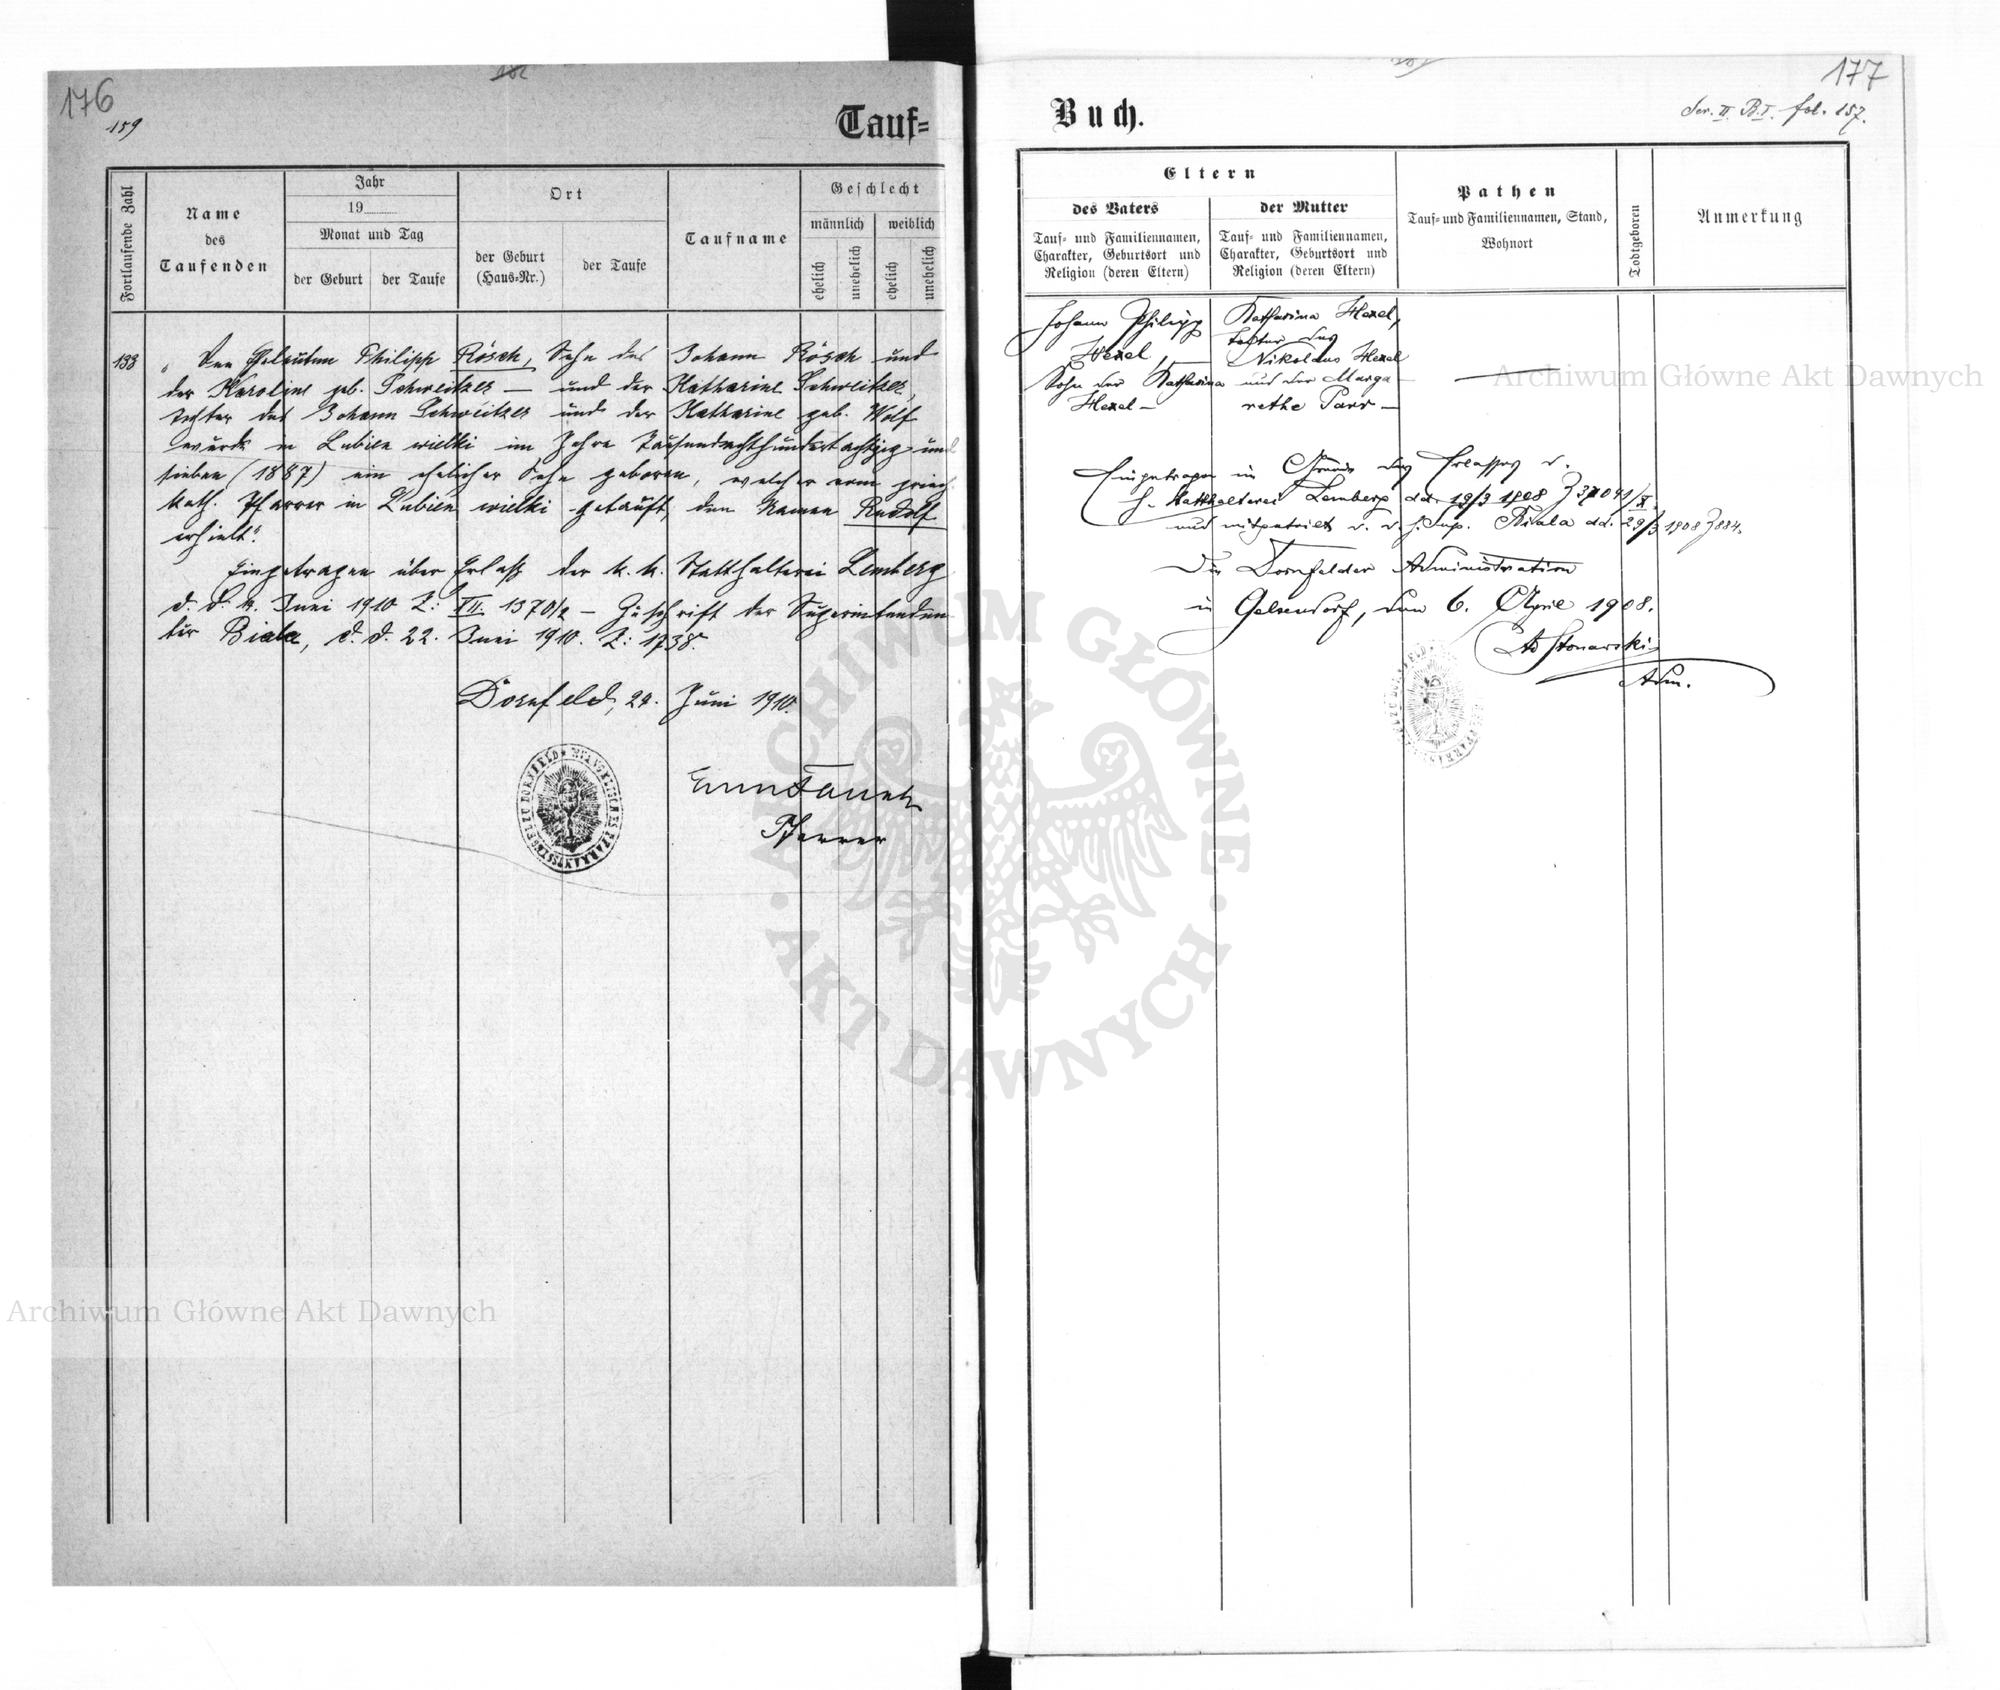 176
159
Tauf=
Fortlaufende Zahl
Name
des
Taufenden
Jahr
19
Monat und Tag
der Geburt
der Taufe
Ort
der Geburt
(Haus=Nr.)
der Taufe
Taufname
Geschlecht
männlich
weiblich
ehelich
unehelich
ehelich
unehelich
133
"Den Eheleuten Philipp Rösch, Sohn des Johann Rösch und
der Karoline geb. Schweitzer — und der Katharine Schweitzer,
Tochter des Johann Schweitzer und der Katharine geb. Wolf
wurde in Lubien wielki im Jahre Tausendachthundertachtzig und
sieben (1887) ein ehelicher Sohn geboren, welcher vom griech.
kath. Pfarrer in Lubien wielki getauft, den Namen Rudolf
erhielt".
Eingetragen über Erlaß der k. k. Statthalterei Lemberg
d. d. Juni 1910 Z: VII. 1370/2 — Zuschrift der Superintenden-
tur Biala, d. d. 22. Juni 1910. Z: 1738.
Dornfeld, 24. Juni 1910.
Pfarrer
EVANGELISCHES PFARRAMTSSIEGEL ZU DORNFELD
177
Ser. II. B. I. fol. 157.
Buch.
Eltern
des Vaters
Tauf= und Familiennamen,
Charakter, Geburtsort und
Religion (deren Eltern)
der Mutter
Tauf= und Familiennamen,
Charakter, Geburtsort und
Religion (deren Eltern)
Pathen
Tauf= und Familiennamen, Stand,
Wohnort
Todtgeboren
Anmerkung
Johann Philipp
Hexel,
Sohn der Katharina
Hexel —
Katharina Hexel,
Tochter des
Nikolaus Hexel
und der Marga-
rethe Parr —
Eingetragen im Grunde des Erlasses d.
h. Statthalterei Lemberg dd. 19/3 1908 Z 37041/X.
und mitgeteilt v. d. h. Sup. Biala dd. 29/3 1908 Z 884.
Die Dornfelder Administration
in Gelsendorf, den 6. April 1908.
Adm.
Archiwum Główne Akt Dawnych
ARCHIWUM GŁÓWNE · AKT DAWNYCH ·
Archiwum Główne Akt Dawnych